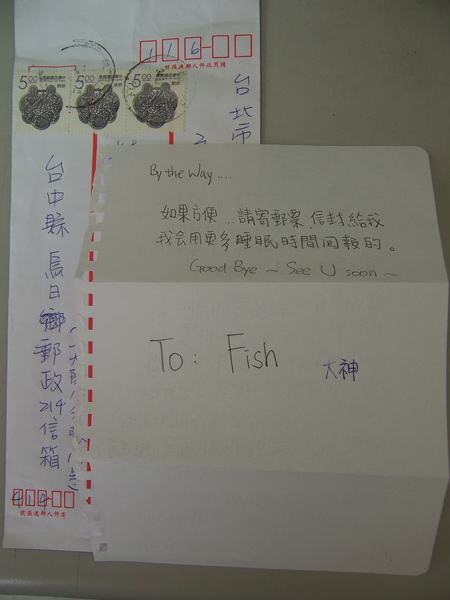 116
5.00
5.00
5.00
台北市
台中縣烏日鄉郵政214信箱
414
By the Way....
如果方便...請寄郵票信封給我
我会用更多睡眠時間回報的。
Good Bye ~ See U soon ~
To: Fish 大神